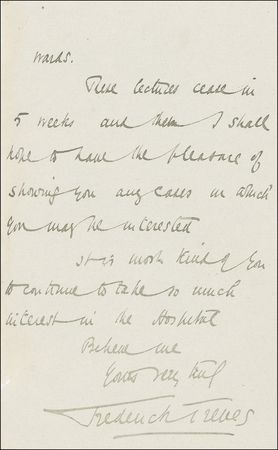 wards.
These lectures cease in
5 weeks and then I shall
hope to have the pleasure of
showing you any cases in which
you may be interested
It is most kind of you
to continue to take so much
interest in the Hospital
Believe me
Yours very truly
Frederick Treves